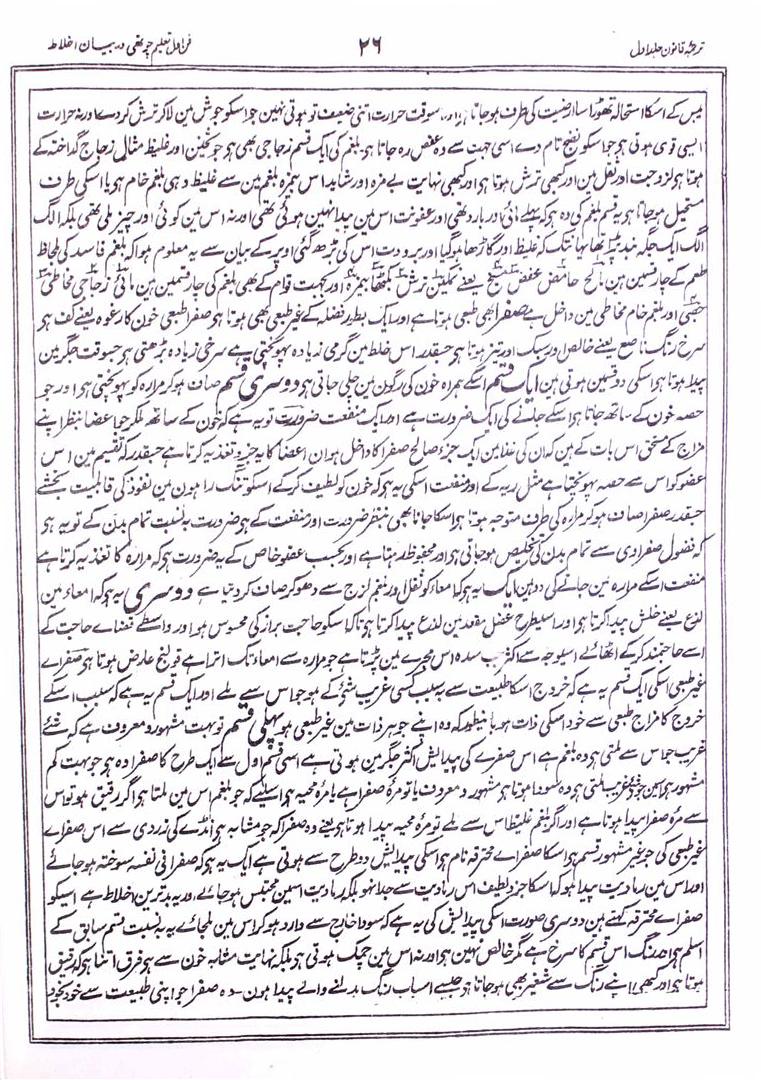 ترجمۂ قانون جلد اول
۲۶
فن اول تعلیم چوتھی در بیان اخلاط
لیس کے اسکا استحالہ تھوڑا سا ارضیت کی طرف ہو جاتا ہی اور اسوقت حرارت اتنی ضعیف تو ہوتی نہین جو اسکو جوش مین لا کر ترش کر دے اور نہ حرارت
ایسی قوی ہوتی ہی جو اسکو نضج تام دے اسی جہت سے وہ عفص رہ جاتا ہی بلغم کی ایک قسم زجاجی بھی ہی جو ثخین اور غلیظ مثال زجاج گداختہ کے
ہوتا ہی لزوجت اور ثقل مین اور کبھی ترش ہوتا ہی اور کبھی نہایت بے مزہ اور شاید اس بیمزہ بلغم مین سے غلیظ وہی بلغم خام ہو یا اسکی طرف
مستحیل ہو جاتا ہو یہ قسم بلغم کی وہ ہی کہ پہلے مائی اور بارد تھی اور عفونت اس مین پیدا نہین ہوئی تھی اور نہ اس مین کوئی اور چیز ملی تھی بلکہ الگ
الگ ایک جگہ بند پڑا تھا یہانتک کہ غلیظ اور گاڑھا ہو گیا اور برودت اس کی بڑھ گئی اوپر کے بیان سے یہ معلوم ہوا کہ بلغم فاسد کی بلحاظ
طعم کے چار قسمین ہین مالح حامض عفص مسیخ یعنے نمکین ترش بکٹھا بیمزہ اور بجہت قوام کے بھی بلغم کی چار قسمین ہین مائی زجاجی مخاطی
جصی اور بلغم خام مخاطی مین داخل ہے صفرا بھی طبعی ہوتا ہے اور ایک بطور فضلہ کے غیر طبعی بھی ہوتا ہی صفرا طبعی خون کا رغوہ یعنے کف ہی
سرخ رنگ ناصع یعنے خالص اور سبک اور تیز ہوتا ہی جسقدر اس خلط مین گرمی زیادہ پہونچتی ہے سرخی زیادہ بڑھتی ہی جسوقت جگر مین
پیدا ہوتا ہی اسکی دو قسمین ہوتی ہین ایک قسم اسکے ہمراہ خون کی رگون مین چلی جاتی ہی دوسری قسم صاف ہو کر مرارہ کو پہونچتی ہی اور جو
حصہ خون کے ساتھ جاتا ہی اسکے جانے کی ایک ضرورت ہے اور ایک منفعت ضرورت تو یہ ہے کہ خون کے ساتھ ملکر جو اعضا بنظر اپنے
مزاج کے مستحق اس بات کے ہین کہ ان کی غذا مین ایک جزء صالح صفرا کا داخل ہو ان اعضا کا یہ جزو تغذیہ کرتا ہے جسقدر کہ تقسیم مین اس
عضو کو اس سے حصہ پہونچتا ہے مثل ریہ کے اور منفعت اسکی یہ ہی کہ خون کو لطیف کر کے اسکو تنگ راہون مین نفوذ کی قابلیت بخشے
جسقدر صفرا صاف ہو کر مرارہ کی طرف متوجہ ہوتا ہی اسکا جانا بھی بنظر ضرورت اور منفعت کے ہی ضرورت بہ نسبت تمام بدن کے تو یہ ہی
کہ فضول صفراوی سے تمام بدن کی تخلیص ہو جاتی ہی اور محفوظ رہتا ہے اور بحسب عضو خاص کے یہ ضرورت ہی کہ مرارہ کا تغذیہ کرتا ہے
منفعت اسکے مرارہ مین جانے کی دو ہین ایک یہ ہی کہ امعاء کو ثفل اور بلغم لزج سے دھو کر صاف کر دیتا ہے دوسری یہ ہی کہ امعاء مین
لذع یعنے خلش پیدا کرتا ہی اور اسیطرح عضل مقعد مین لذع پیدا کرتا ہی تا کہ اسکو حاجت براز کی محسوس ہو اور واسطے قضاے حاجت کے
اسے حاجتمند کر کے اٹھائے اسیوجہ سے اکثر جب سدہ اس مجرے مین پڑتا ہے جو مرارہ سے امعاء تک اترا ہے قولنج عارض ہوتا ہی صفراے
غیر طبعی اسکی ایک قسم یہ ہے کہ خروج اسکا طبیعت سے بسبب کسی غریب شئ کے ہو جو اس سے ملے اور ایک قسم یہ ہے کہ سبب اسکے
خروج کا مزاج طبعی سے خود اسکی ذات ہو باینطور کہ وہ اپنے جوہر ذات مین غیر طبعی ہو پہلی قسم تو بہت مشہور و معروف ہے کہ شئے
غریب جو اس سے ملتی ہی وہ بلغم ہے اس صفرے کی پیدایش اکثر جگر مین ہوتی ہے اسی قسم اول سے ایک طرح کا صفرا وہ ہی جو بہت کم
مشہور ہی اسمین جو شئے غریب ملتی ہی وہ سودا ہوتا ہی مشہور و معروف یا تو مرۂ صفرا ہے یا مرۂ محیہ ہی اسلئے کہ جو بلغم اس مین ملتا ہی اگر رقیق ہو تو اس
سے مرۂ صفرا پیدا ہوتا ہے اور اگر بلغم غلیظ اس سے ملے تو مرۂ محیہ پیدا ہوتا ہی یعنے وہ صفرا کہ جو مشابہ ہی انڈے کی زردی سے اس صفراے
غیر طبعی کی جو غیر مشہور قسم ہی اسکا صفراے محترقہ نام ہی اسکی پیدایش دو طرح سے ہوتی ہے ایک یہ ہی کہ صفرا فی نفسہ سوختہ ہو جائے
اور اس مین رمادیت پیدا ہو کہ اسکا جزو لطیف اس رمادیت سے جدا نہو بلکہ رمادیت اسمین محتبس ہو جائے اور یہ بدترین اخلاط ہے اسیکو
صفراے محترقہ کہتے ہین دوسری صورت اسکی پیدایش کی یہ ہے کہ سودا خارج سے وارد ہو کر اس مین ملجائے یہ بہ نسبت قسم سابق کے
اسلم ہی اور رنگ اس قسم کا سرخ ہے مگر خالص نہین ہی اور نہ اس مین چمک ہوتی ہی بلکہ نہایت مشابہ خون سے ہی فرق اتنا ہی کہ رقیق
ہوتا ہی اور کبھی اپنے رنگ سے متغیر بھی ہو جاتا ہی جیسے اسباب رنگ بدلنے والے پیدا ہون۔ وہ صفرا جو اپنی طبیعت سے خود بخود